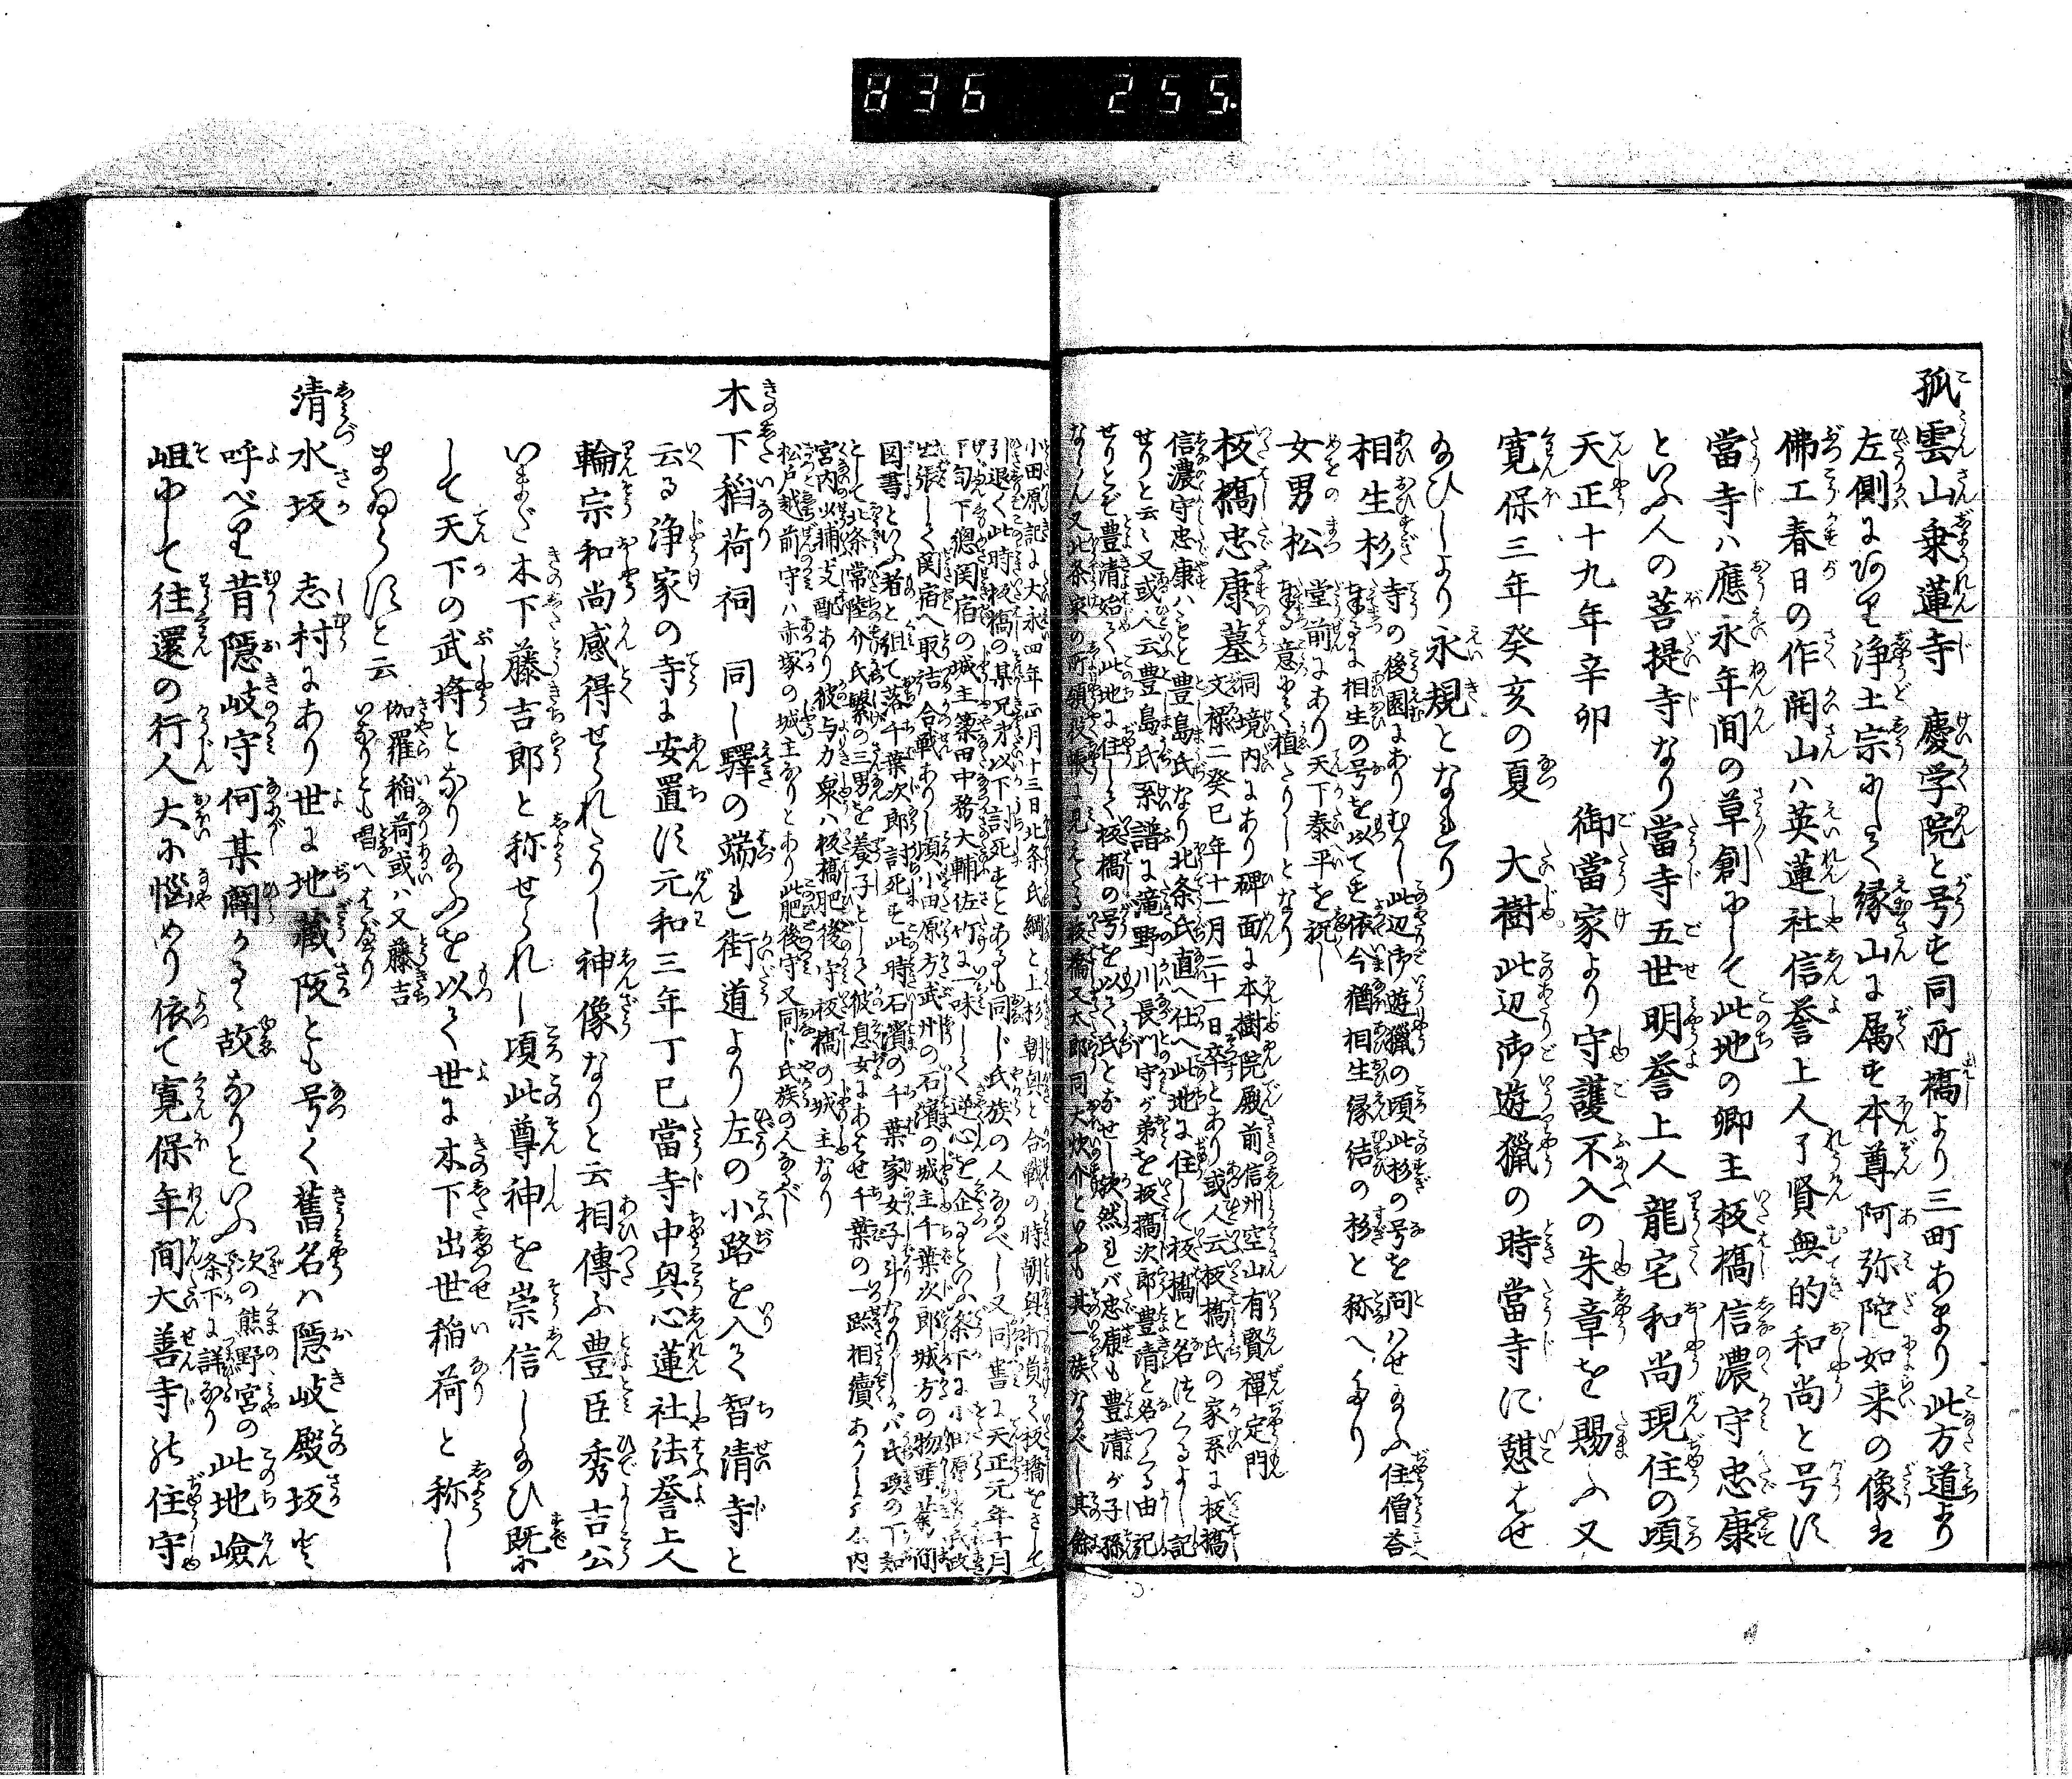 836 255.
孤雲山乗蓮寺 慶学院と号す同所橋より三町あまり此方道より
左側にあり浄土宗にして縁山に属す本尊阿弥陀如来の像は
佛工春日の作開山ハ英蓮社信誉上人了賢無的和尚と号す
當寺ハ應永年間の草創にして此地の郷主板橋信濃守忠康
といふ人の菩提寺なり當寺五世明誉上人龍宅和尚現住の頃
天正十九年辛卯 御當家より守護不入の朱章を賜ふ又
寛保三年癸亥の夏 大樹此辺御遊猟の時當寺に憩はせ
給ひしより永規となれり
相生杉 寺の後園にあり むかし此辺御遊猟の頃此杉の号を問はせ給ふ住僧答
まうすに相生の号を以てす依今猶相生縁結の杉と称へたり
女男松 堂前にあり天下泰平を祝し
まゐる意にて植たりしとなり
板橋忠康墓 同境内にあり碑面に本樹院殿前信州空山有賢禅定門
文禄二癸巳年十一月二十一日卒とあり或人云板橋氏の家系に板橋
信濃守忠康ハもと豊島氏なり北条氏直へ仕へ此地に住して板橋と名つくるよし記
せりと云々又或ハ云豊島氏系譜に滝野川長門守が弟を板橋次郎豊清と名つくる由記
せりとぞ豊清始て此地に住して板橋の号を以て氏となせし歟然れバ忠康も豊清が子孫
ならん又北条家の所領役帳に見えたる板橋又太郎同大炊介といへるも其一族なるべし其餘
小田原記に大永四年正月十三日北条氏綱と上杉朝興と合戦の時朝興打負て板橋をさして
引退く此時板橋の某兄弟以下討死すとあるも同じ氏族の人なるべし又同書に天正元年十月
下旬下總関宿の城主簗田中務大輔佐竹に一味して逆心を企るといふ条下に小田原氏政
出張して関宿へ取詰合戦ありし頃小田原方武州の石濱の城主千葉次郎城方の物頭
図書といふ者と組て落千葉次郎討死す此時石濱の千葉家女子斗なりしかバ氏政の下知
として北条常陸介氏繁の三男を養子として彼息女にあはせ千葉の一跡相續
宮内少輔支配あり彼与力衆ハ板橋肥後守板橋の城主なり
松戸越前守ハ赤塚の城主なりとあり此肥後守又同じ氏族の人なるべし
木下稲荷祠 同し驛の端れ街道より左の小路を入て智清寺と
云る浄家の寺に安置す元和三年丁巳當寺中興心蓮社法誉上人
輪宗和尚感得せられたりし神像なりと云相傳ふ豊臣秀吉公
いまだ木下藤吉郎と称せられし頃此尊神を崇信し給ひ既に
して天下の武将となり給ふを以て世に木下出世稲荷と称し
まゐらすと云 伽羅稲荷或ハ又藤吉
いなりとも唱へはべり
清水坂 志村にあり世に地蔵阪とも号く舊名ハ隠岐殿坂と
呼べり昔隠岐守何某闢かるゝ故なりといふ 次の熊野宮の
条下に詳なり 此地嶮
岨にして往還の行人大に悩めり依て寛保年間大善寺の住守